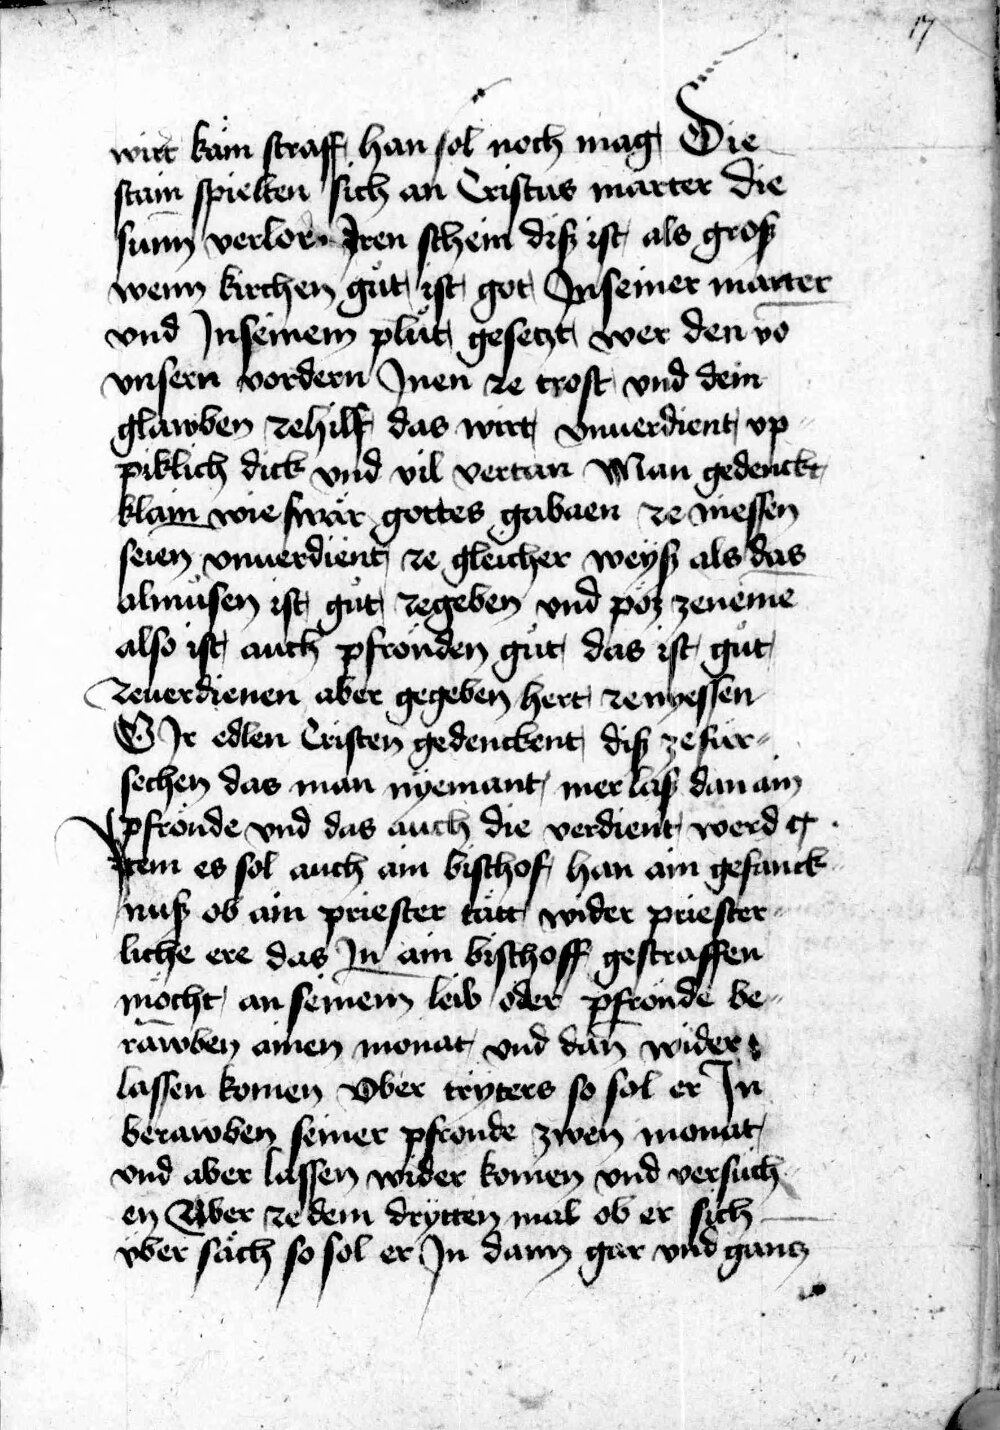 17
wirt kain straff han sol noch mag Die
stain spielten sich an Cristus marter die
sunn verlor Iren schein diß ist als groß
wenn kirchen gůt ist got In seiner marter
vnd In seinem plůt gesetzt wer den vō
vnsern vordern Inen ze trost vnd dem
glawben zehilf das wirt vnuerdient vp
piklich dick vnd vil vertan Man gedenckt
klain wie swär gottes gabaen ze niessen
seien vnuerdient ze gleicher weyß als das
almůsen ist gůt zegeben vnd pöz zenemē
also ist auch pfrönden gůt das ist gůt
zeuerdienen aber gegeben hert zenyessen
O Ir edlen Cristen gedenckent diß zefür
sechen das man nyemant mer laß dan ain
pfrönde vnd das auch die verdient werd
Item es sol auch ain bischof han ain gefanck
nuß ob ain priester tätt wider priester
liche ere das In ain bischoff gestraffen
möcht an seinem leib oder pfronde be
rawben ainen monat vnd dan wider
lassen komen Vber tryters so sol er In
berawben seiner pfronde zwen monat
vnd aber lassen wider komen vnd versuch
en Aber ze dem drytten mal ob er sich
vber säch so sol er In dann gar vnd gantz